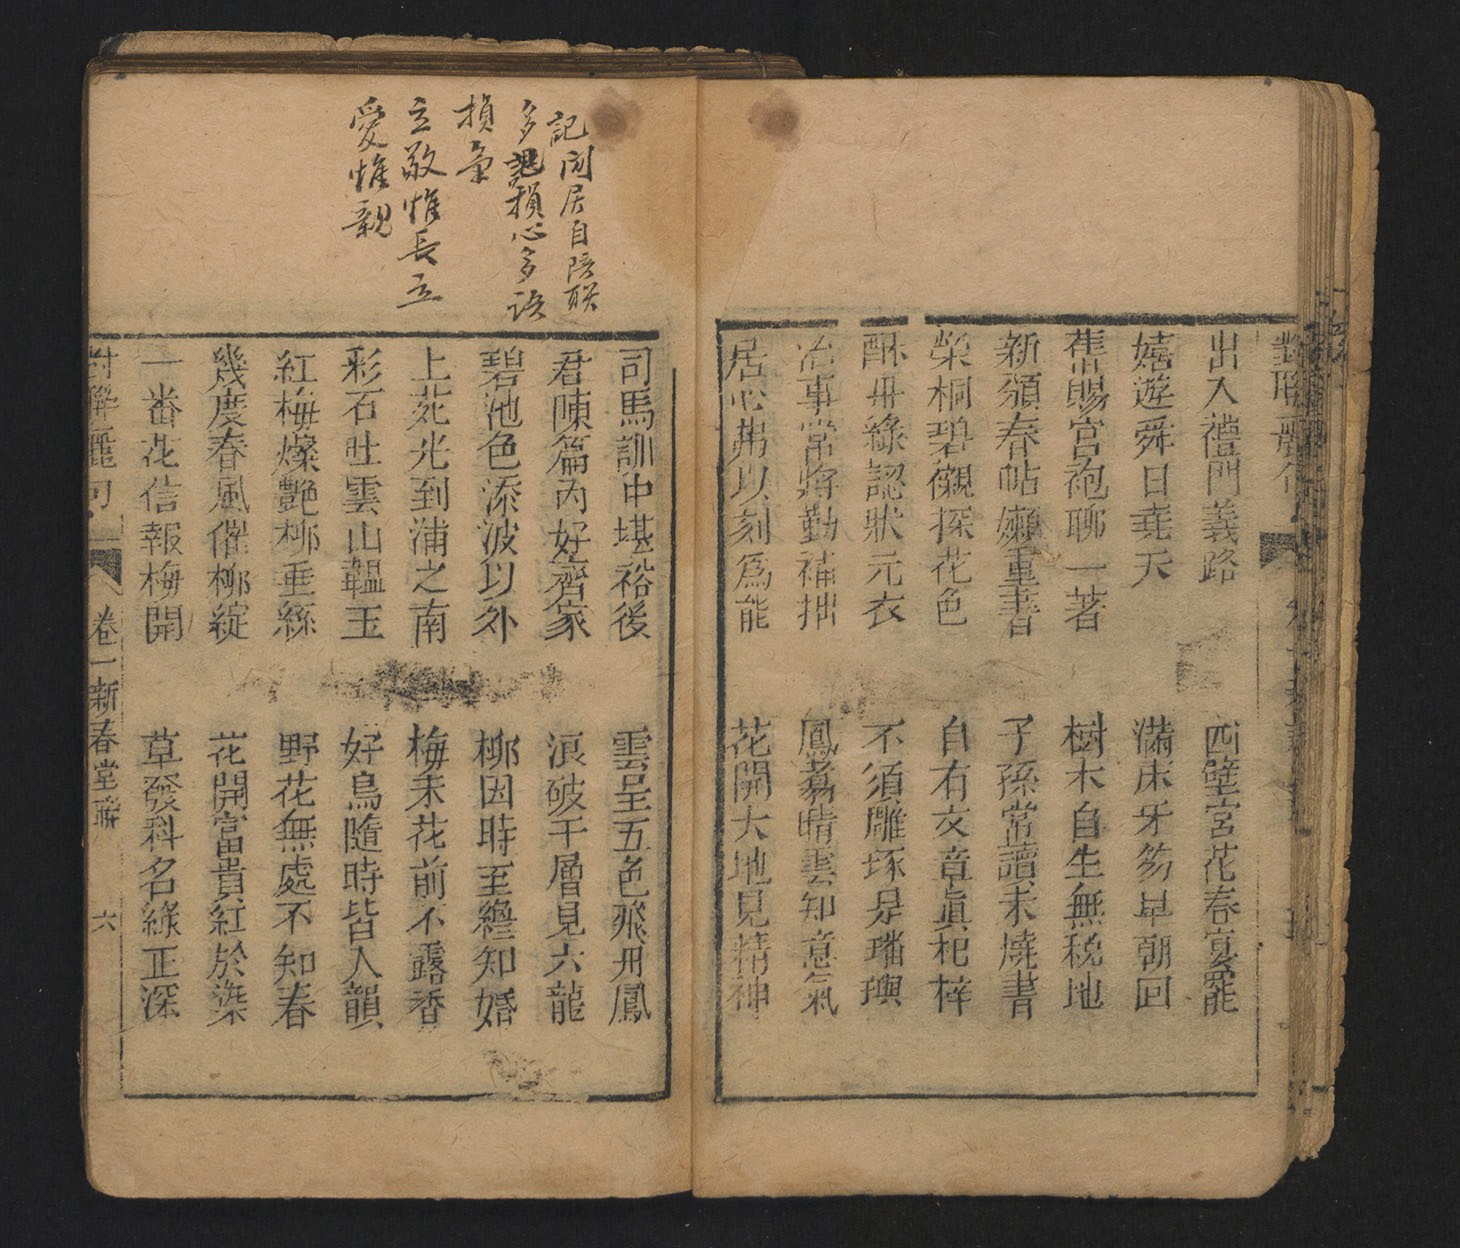 出入禮門義路
西壁宮花春宴罷
嬉遊舜日堯天
滿床牙笏早朝回
舊賜宮袍聊一著
樹木自生無稅地
新頒春帖嬾重書
子孫常讀未燒書
榮桐碧襯探花色
自有文章眞杞梓
酥丹綠認狀元衣
不須雕琢是璠璵
治事常將勤補拙
鳳翥晴雲知意氣
居心弗以刻爲能
花開大地見精神
記閒居自陪联
多言損心多语
損氣
立敬惟長立
愛惟親
司馬訓中堪裕後
雲呈五色飛丹鳳
君陳篇內好齊家
浪破千層見六龍
碧池色添波以外
柳因時至纔知婚
上苑光到浦之南
梅未花前不露香
彩石吐雲山韞玉
好鳥隨時皆入韻
紅梅燦艷柳垂絲
野花無處不知春
幾度春風催柳綻
花開富貴紅於染
一番花信報梅開
草發科名綠正深
對聯麗句
卷一新春堂聯
六